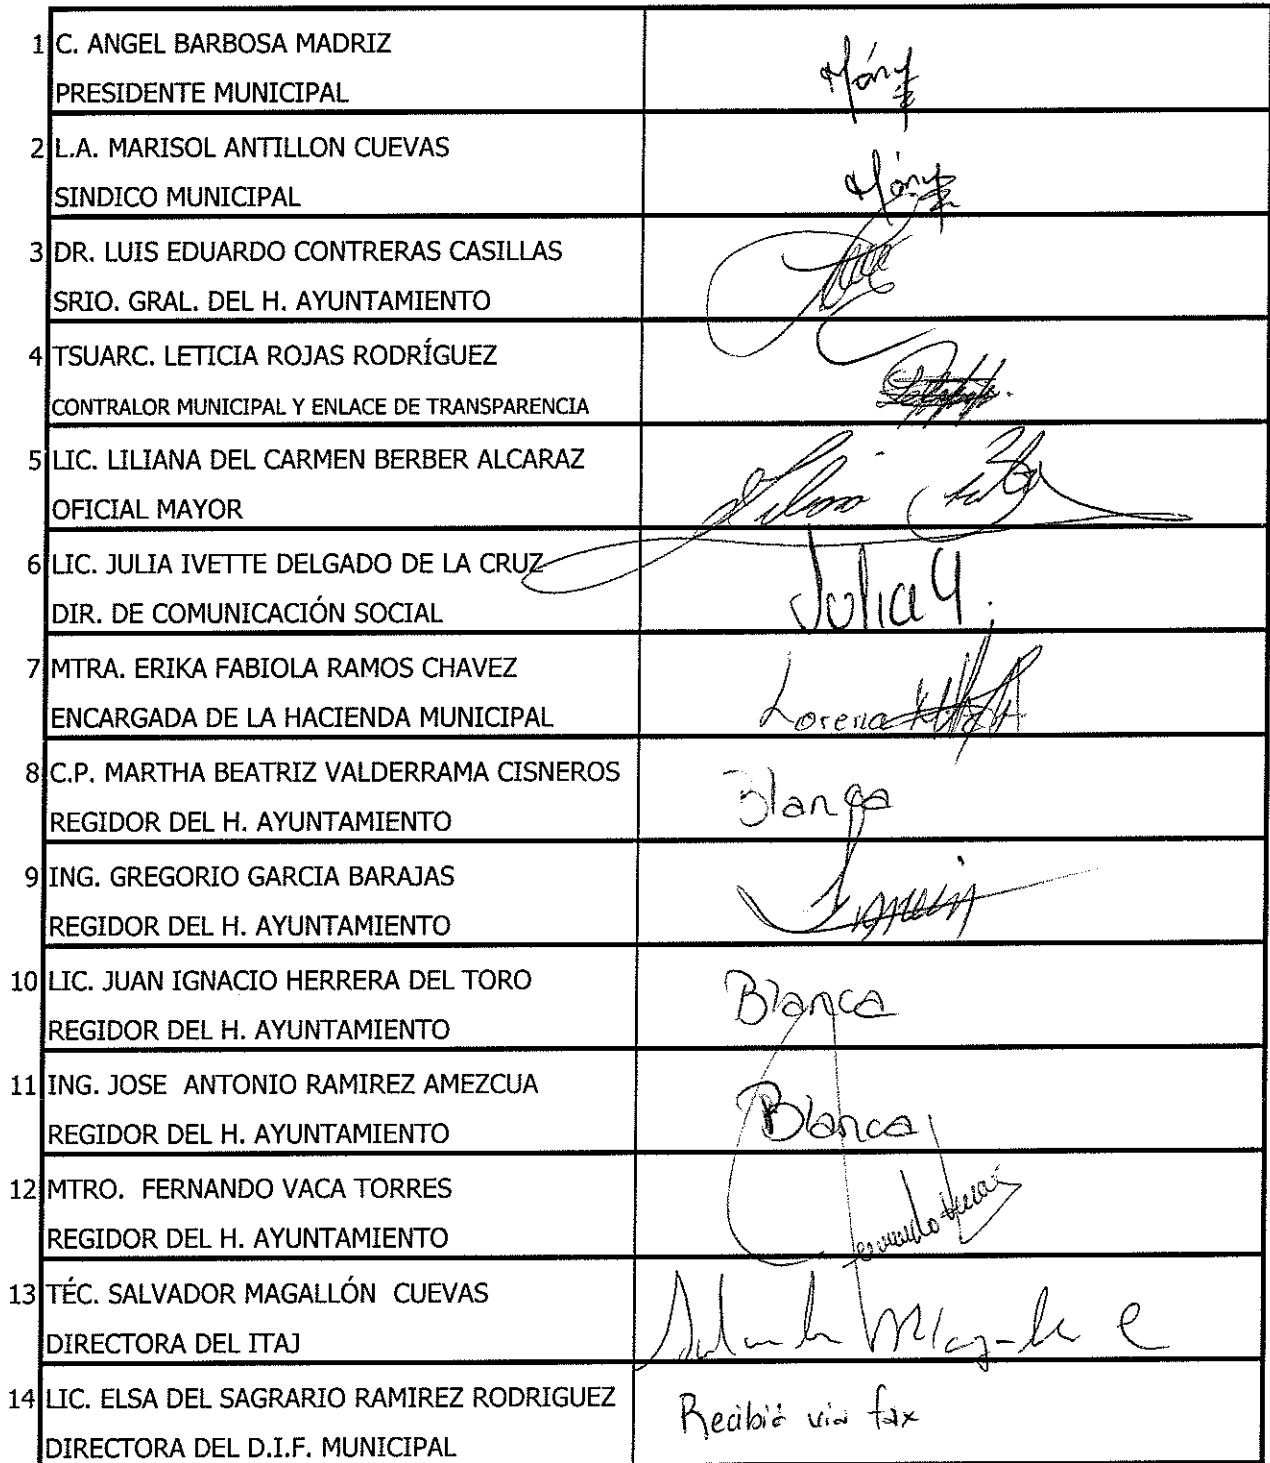 1 C. ANGEL BARBOSA MADRIZ
PRESIDENTE MUNICIPAL
2 L.A. MARISOL ANTILLON CUEVAS
SINDICO MUNICIPAL
3 DR. LUIS EDUARDO CONTRERAS CASILLAS
SRIO. GRAL. DEL H. AYUNTAMIENTO
4 TSUARC. LETICIA ROJAS RODRÍGUEZ
CONTRALOR MUNICIPAL Y ENLACE DE TRANSPARENCIA
5 LIC. LILIANA DEL CARMEN BERBER ALCARAZ
OFICIAL MAYOR
6 LIC. JULIA IVETTE DELGADO DE LA CRUZ
DIR. DE COMUNICACIÓN SOCIAL
Julia
7 MTRA. ERIKA FABIOLA RAMOS CHAVEZ
ENCARGADA DE LA HACIENDA MUNICIPAL
Lorena
8 C.P. MARTHA BEATRIZ VALDERRAMA CISNEROS
REGIDOR DEL H. AYUNTAMIENTO
Blanca
9 ING. GREGORIO GARCIA BARAJAS
REGIDOR DEL H. AYUNTAMIENTO
10 LIC. JUAN IGNACIO HERRERA DEL TORO
REGIDOR DEL H. AYUNTAMIENTO
Blanca
11 ING. JOSE ANTONIO RAMIREZ AMEZCUA
REGIDOR DEL H. AYUNTAMIENTO
Blanca
12 MTRO. FERNANDO VACA TORRES
REGIDOR DEL H. AYUNTAMIENTO
13 TÉC. SALVADOR MAGALLÓN CUEVAS
DIRECTORA DEL ITAJ
14 LIC. ELSA DEL SAGRARIO RAMIREZ RODRIGUEZ
DIRECTORA DEL D.I.F. MUNICIPAL
Recibió via fax